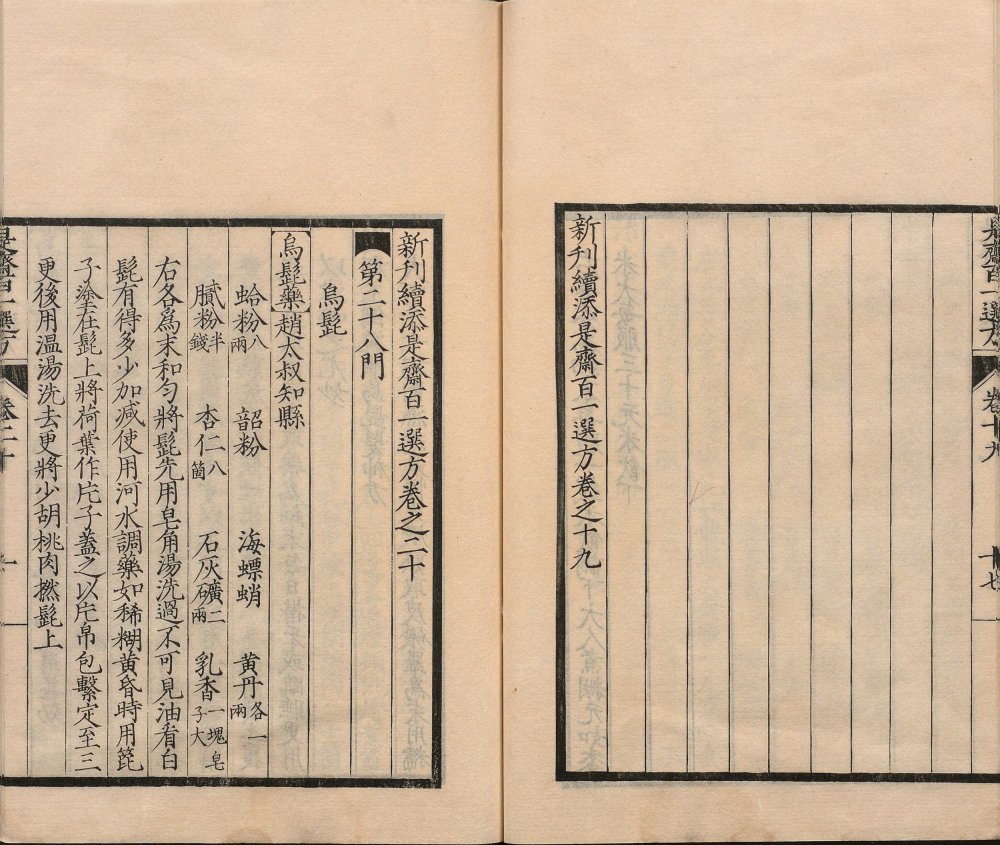 是齋百一選方 卷十九 十七
新刊續添是齋百一選方卷之十九
新刊續添是齋百一選方卷之二十
第二十八門
烏髭
烏髭藥 趙太叔知縣
蛤粉八兩 韶粉 海螵蛸 黃丹各一兩
膩粉半錢 杏仁八箇 石灰礦二兩 乳香一塊皂子大
右各為末和勻將髭先用皂角湯洗過不可見油看白
髭有得多少加減使用河水調藥如稀糊黃昏時用篦
子塗在髭上將荷葉作片子蓋之以片帛包繫定至三
更後用溫湯洗去更將少胡桃肉撚髭上
是齋百一選方 卷二十 一